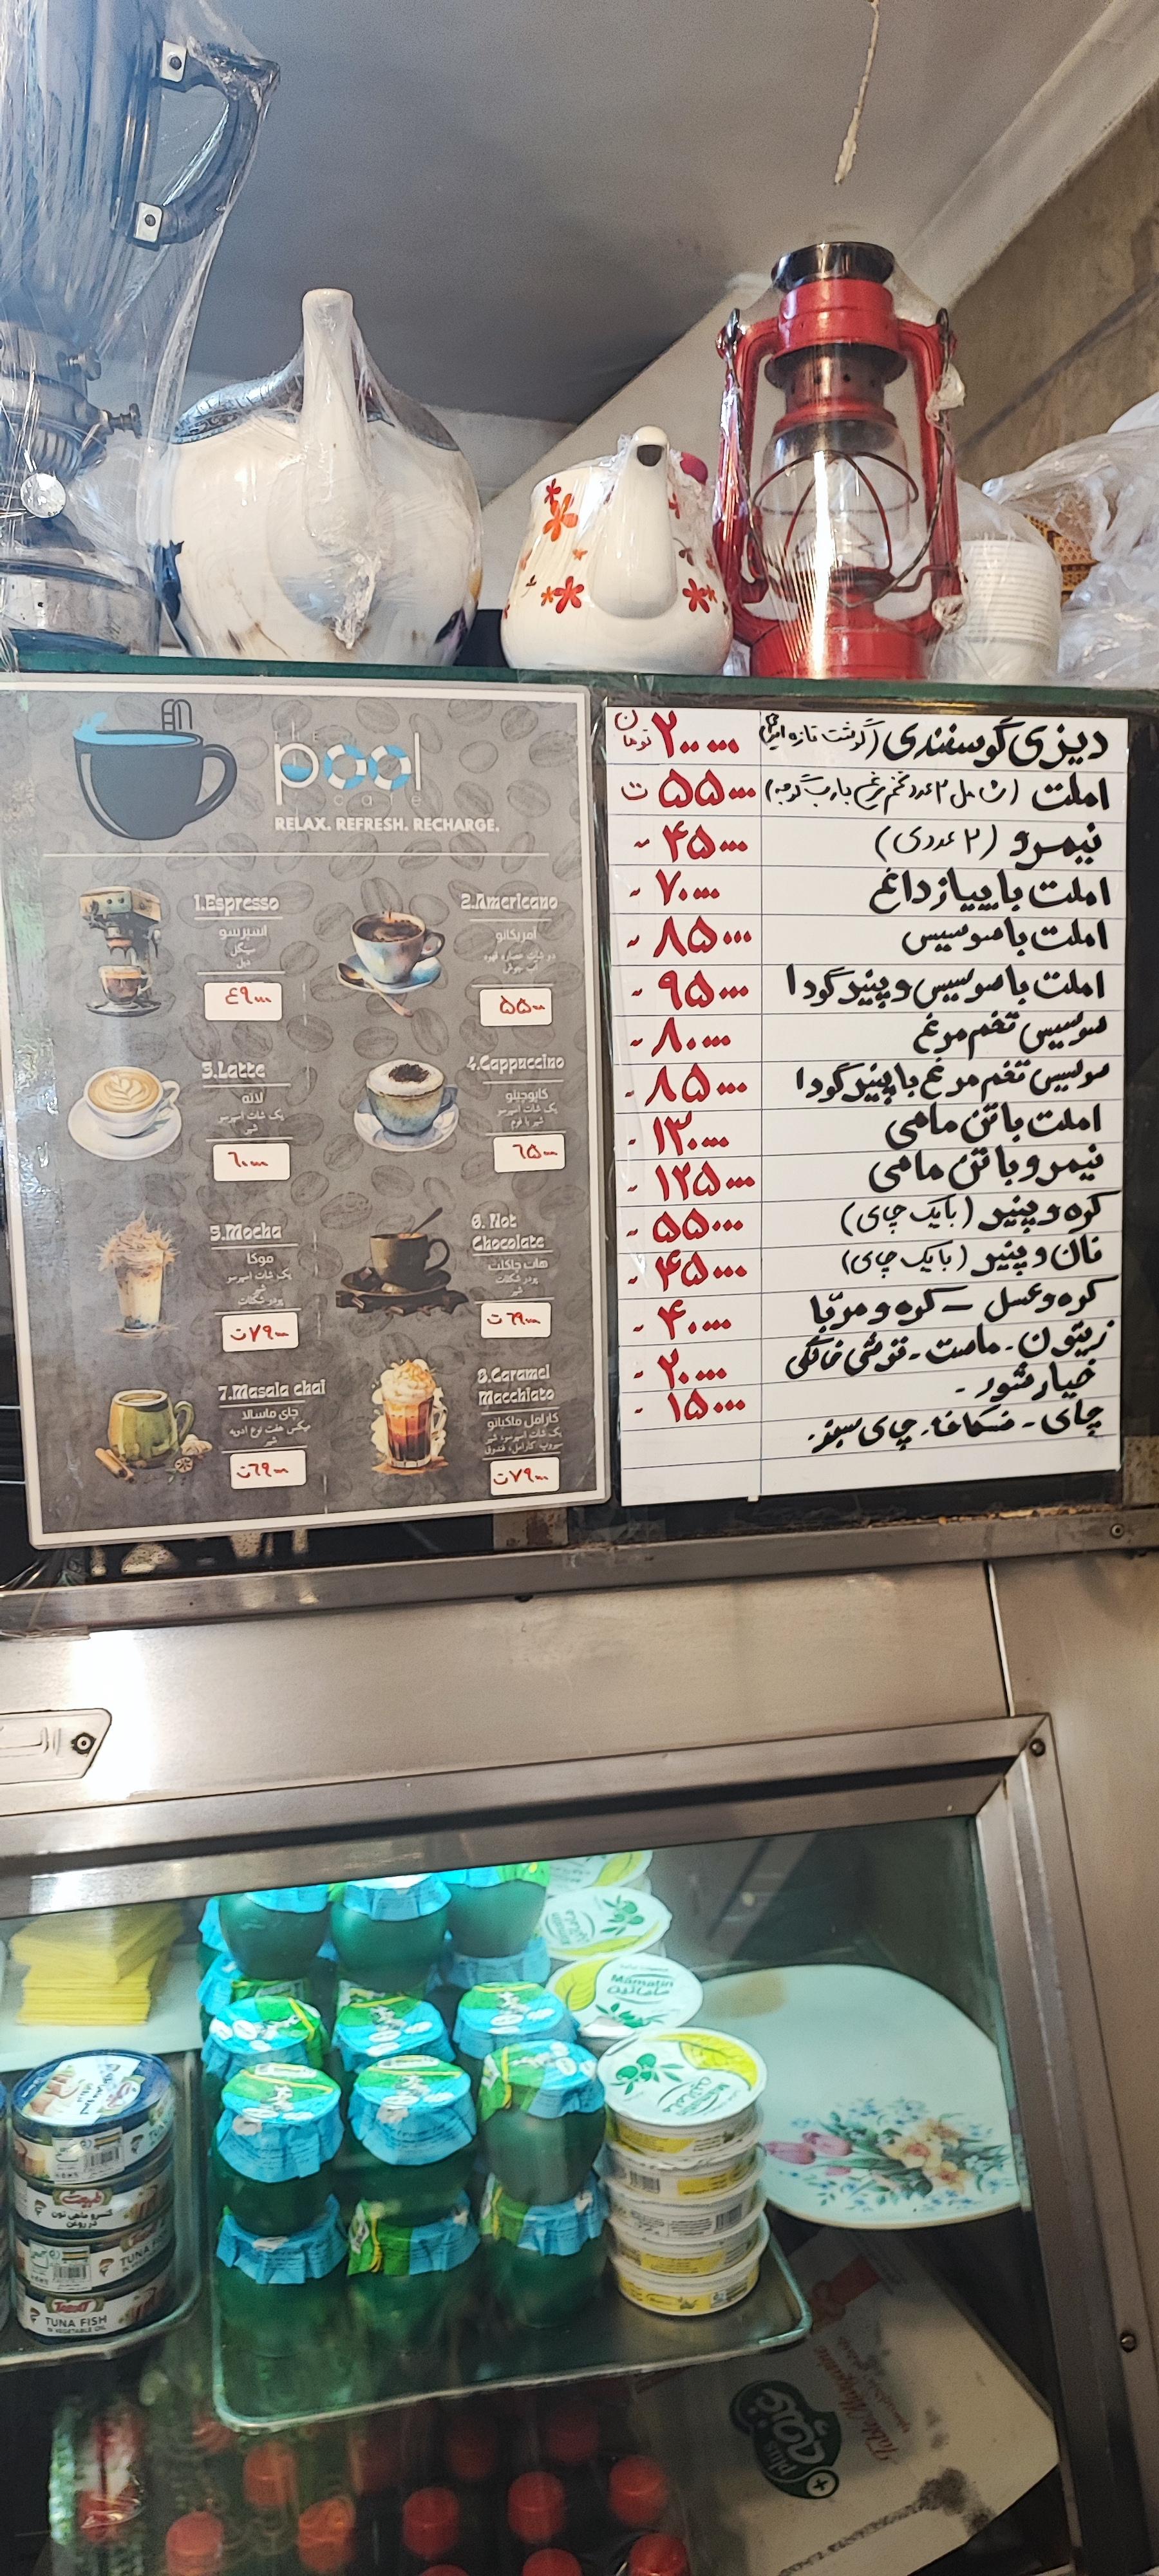 the
pool
cafe
RELAX. REFRESH. RECHARGE.
1.Espresso
اسپرسو
سینگل
دبل
۴۹۰۰۰
2.Americano
آمریکانو
دو شات عصاره قهوه
آب جوش
۵۵۰۰۰
3.Latte
لاته
یک شات اسپرسو
شیر
۶۰۰۰۰
4.Cappuccino
کاپوچینو
یک شات اسپرسو
شیر با فوم
۶۵۰۰۰
5.Mocha
موکا
یک شات اسپرسو
شیر
پودر شکلات
۷۹۰۰۰ت
6. Hot
Chocolate
هات چاکلت
پودر شکلات
شیر
۶۹۰۰۰ت
7.Masala chai
چای ماسالا
میکس هفت نوع ادویه
شیر
۶۹۰۰۰ت
8.Caramel
Macchiato
کارامل ماکیاتو
یک شات اسپرسو، شیر
سیروپ کارامل، فندوق
۷۹۰۰۰ت
دیزی گوسفندی (گوشت تازه ایرانی) ۲۰۰۰۰۰ تومان
املت (شامل ۲ عدد تخم مرغ با رب گوجه) ۵۵۰۰۰ ت
نیمرو (۲ عددی) ۴۵۰۰۰ -
املت با پیاز داغ ۷۰۰۰۰ -
املت با سوسیس ۸۵۰۰۰ -
املت با سوسیس و پنیر گودا ۹۵۰۰۰ -
سوسیس تخم مرغ ۸۰۰۰۰ -
سوسیس تخم مرغ با پنیر گودا ۸۵۰۰۰ -
املت با تن ماهی ۱۳۰۰۰۰ -
نیمرو با تن ماهی ۱۲۵۰۰۰ -
کره و پنیر (با یک چای) ۵۵۰۰۰ -
نان و پنیر (با یک چای) ۴۵۰۰۰ -
کره و عسل - کره و مربّا ۴۰۰۰۰ -
زیتون - ماست - ترشی خانگی ۲۰۰۰۰ -
خیار شور - ۱۵۰۰۰ -
چای - نسکافه - چای سبز
Mamatin
ماماتین
کنسرو ماهی تون
در روغن
TUNA FISH
TUNA FISH
IN VEGETABLE OIL
Table Margarine
plus